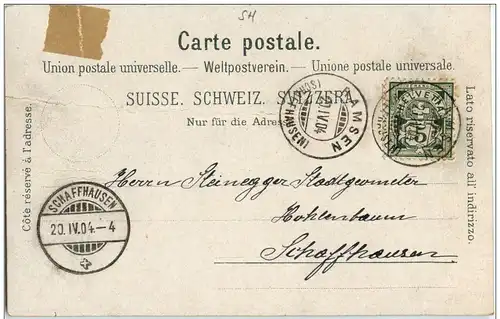 SH
Carte postale.
Union postale universelle. — Weltpostverein. — Unione postale universale.
SUISSE. SCHWEIZ. SVIZZERA.
Nur für die Adresse
Côte réservé à l'adresse.
Lato riservato all' indirizzo.
RAMSEN
(SCHAFFHAUSEN)
IV.04
Herrn Steinegger Stadtgeometer
Hohlenbaum
Schaffhausen
SCHAFFHAUSEN
20.IV.04.-4